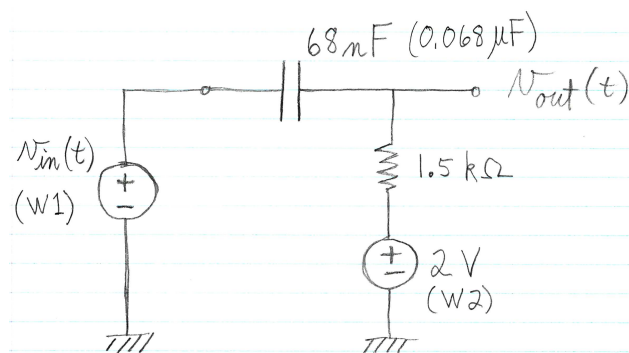 68nF (0.068µF)
Vout(t)
Vin(t)
(W1)
+
−
1.5 kΩ
+
−
2 V
(W2)